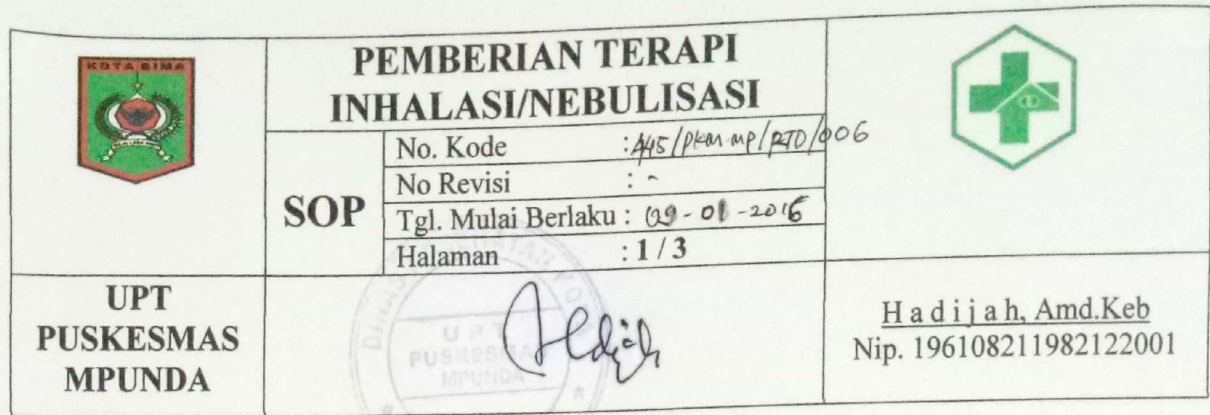 KOTA BIMA
PEMBERIAN TERAPI
INHALASI/NEBULISASI
SOP
No. Kode :A45/PKM-MP/RTD/006
No Revisi : -
Tgl. Mulai Berlaku : 09-01-2016
Halaman : 1 / 3
UPT
PUSKESMAS
MPUNDA
UPT
PUSKESMAS
MPUNDA
H a d i j a h, Amd.Keb
Nip. 196108211982122001